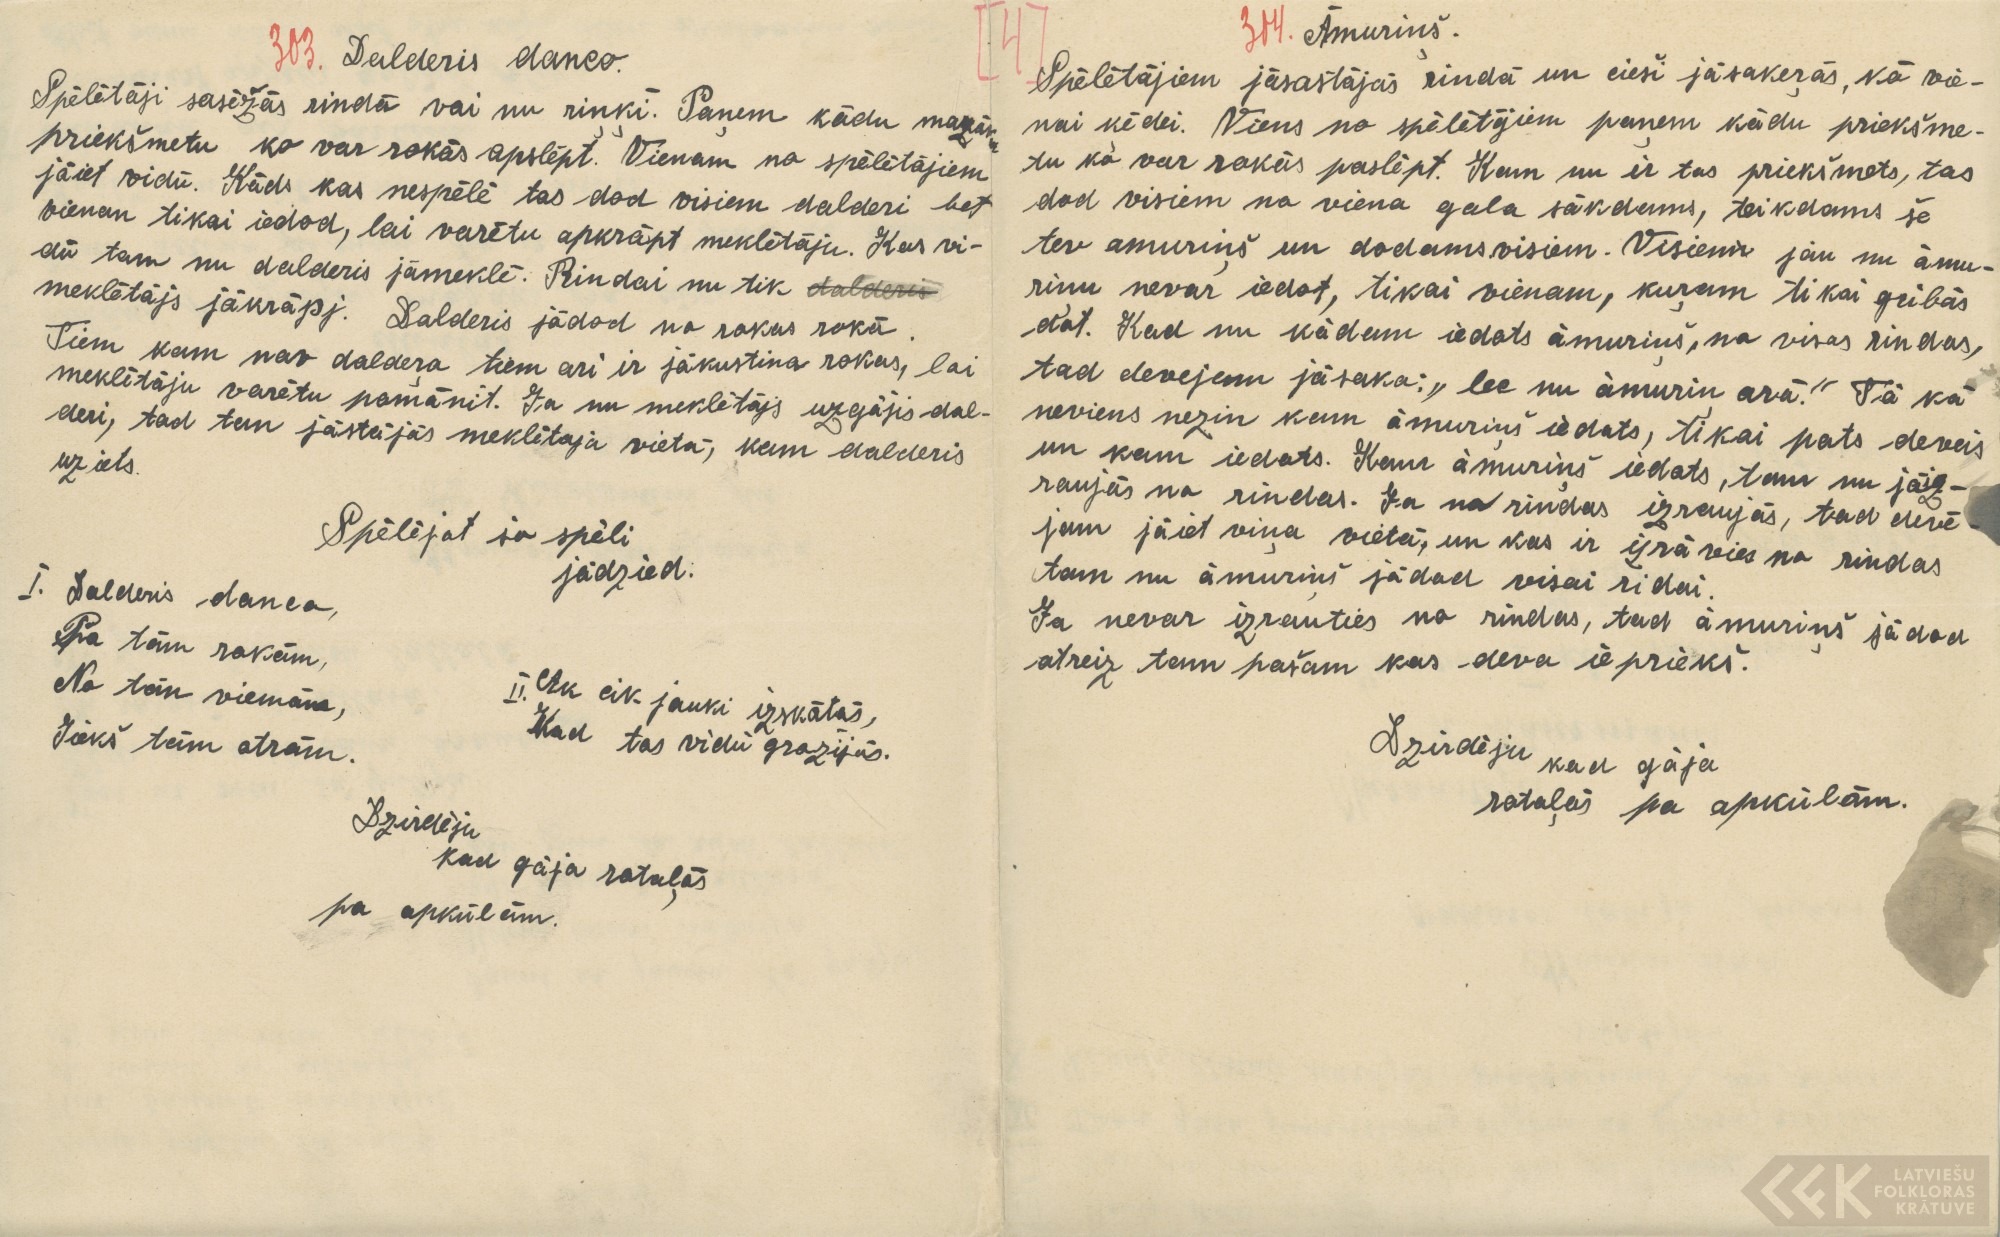 303. Dalderis danco.
Spēlētāji sasēžās rindā vai nu riņķī. Paņem kādu mazāku
priekšmetu ko var rokās apslēpt. Vienam no spēlētājiem
jāiet vidū. Kāds kas nespēlē tas dod visiem dalderi bet
vienam tikai iedod, lai varētu apkrāpt meklētāju. Kas vi-
dū tam nu dalderis jāmeklē. Rindai nu tik dalderis
meklētājs jākrāpj. Dalderis jādod no rokas rokā.
Tiem kam nav daldeŗa tiem ari ir jākustina rokas, lai
meklētāju varētu pamānit. Ja nu meklētājs uzgājis dal-
deri, tad tam jāstājās meklētaja vietā, kam dalderis
uziets.
Spēlējot šo spēli
jādzied:
I. Dalderis danco,
Pa tām rokām,
No tām vienām,
Iekš tām otrām.
II. Ak cik jauki izskatās,
Kad tas vidū grozījās.
Dzirdēju
kad gāja rotaļās
pa apkūlām.
[4]
304. Āmuriņš.
Spēlētājiem jāsastājās rindā un cieši jāsakeŗās, kā vie-
nai ķēdei. Viens no spēlētājiem paņem kādu priekšme-
tu ko var rokās paslēpt. Kam nu ir tas priekšmets, tas
dod visiem no viena gala sākdams, teikdams še
tev amuriņš un dodams visiem. Visiem jau nu āmu-
rinu nevar iedot, tikai vienam, kuŗam tikai gribās
dot. Kad nu kādam iedots āmuriņš, no visas rindas,
tad devejem jāsaka: „lec nu āmuriņ arā." Tā kā
neviens nezin kam āmuriņš iedots, tikai pats devējs
un kam iedots. Kam āmuriņš iedots, tam nu jāiz-
raujās no rindas. Ja no rindas izraujās, tad devē-
jam jāiet viņa vietā, un kas ir izrāvies no rindas
tam nu āmuriņš jādod visai ridai.
Ja nevar izrauties no rindas, tad āmuriņš jādod
atreiz tam pašam kas deva iepriekš.
Dzirdēju
kad gāja
rotaļās pa apkūlām.
LATVIEŠU
FOLKLORAS
KRĀTUVE